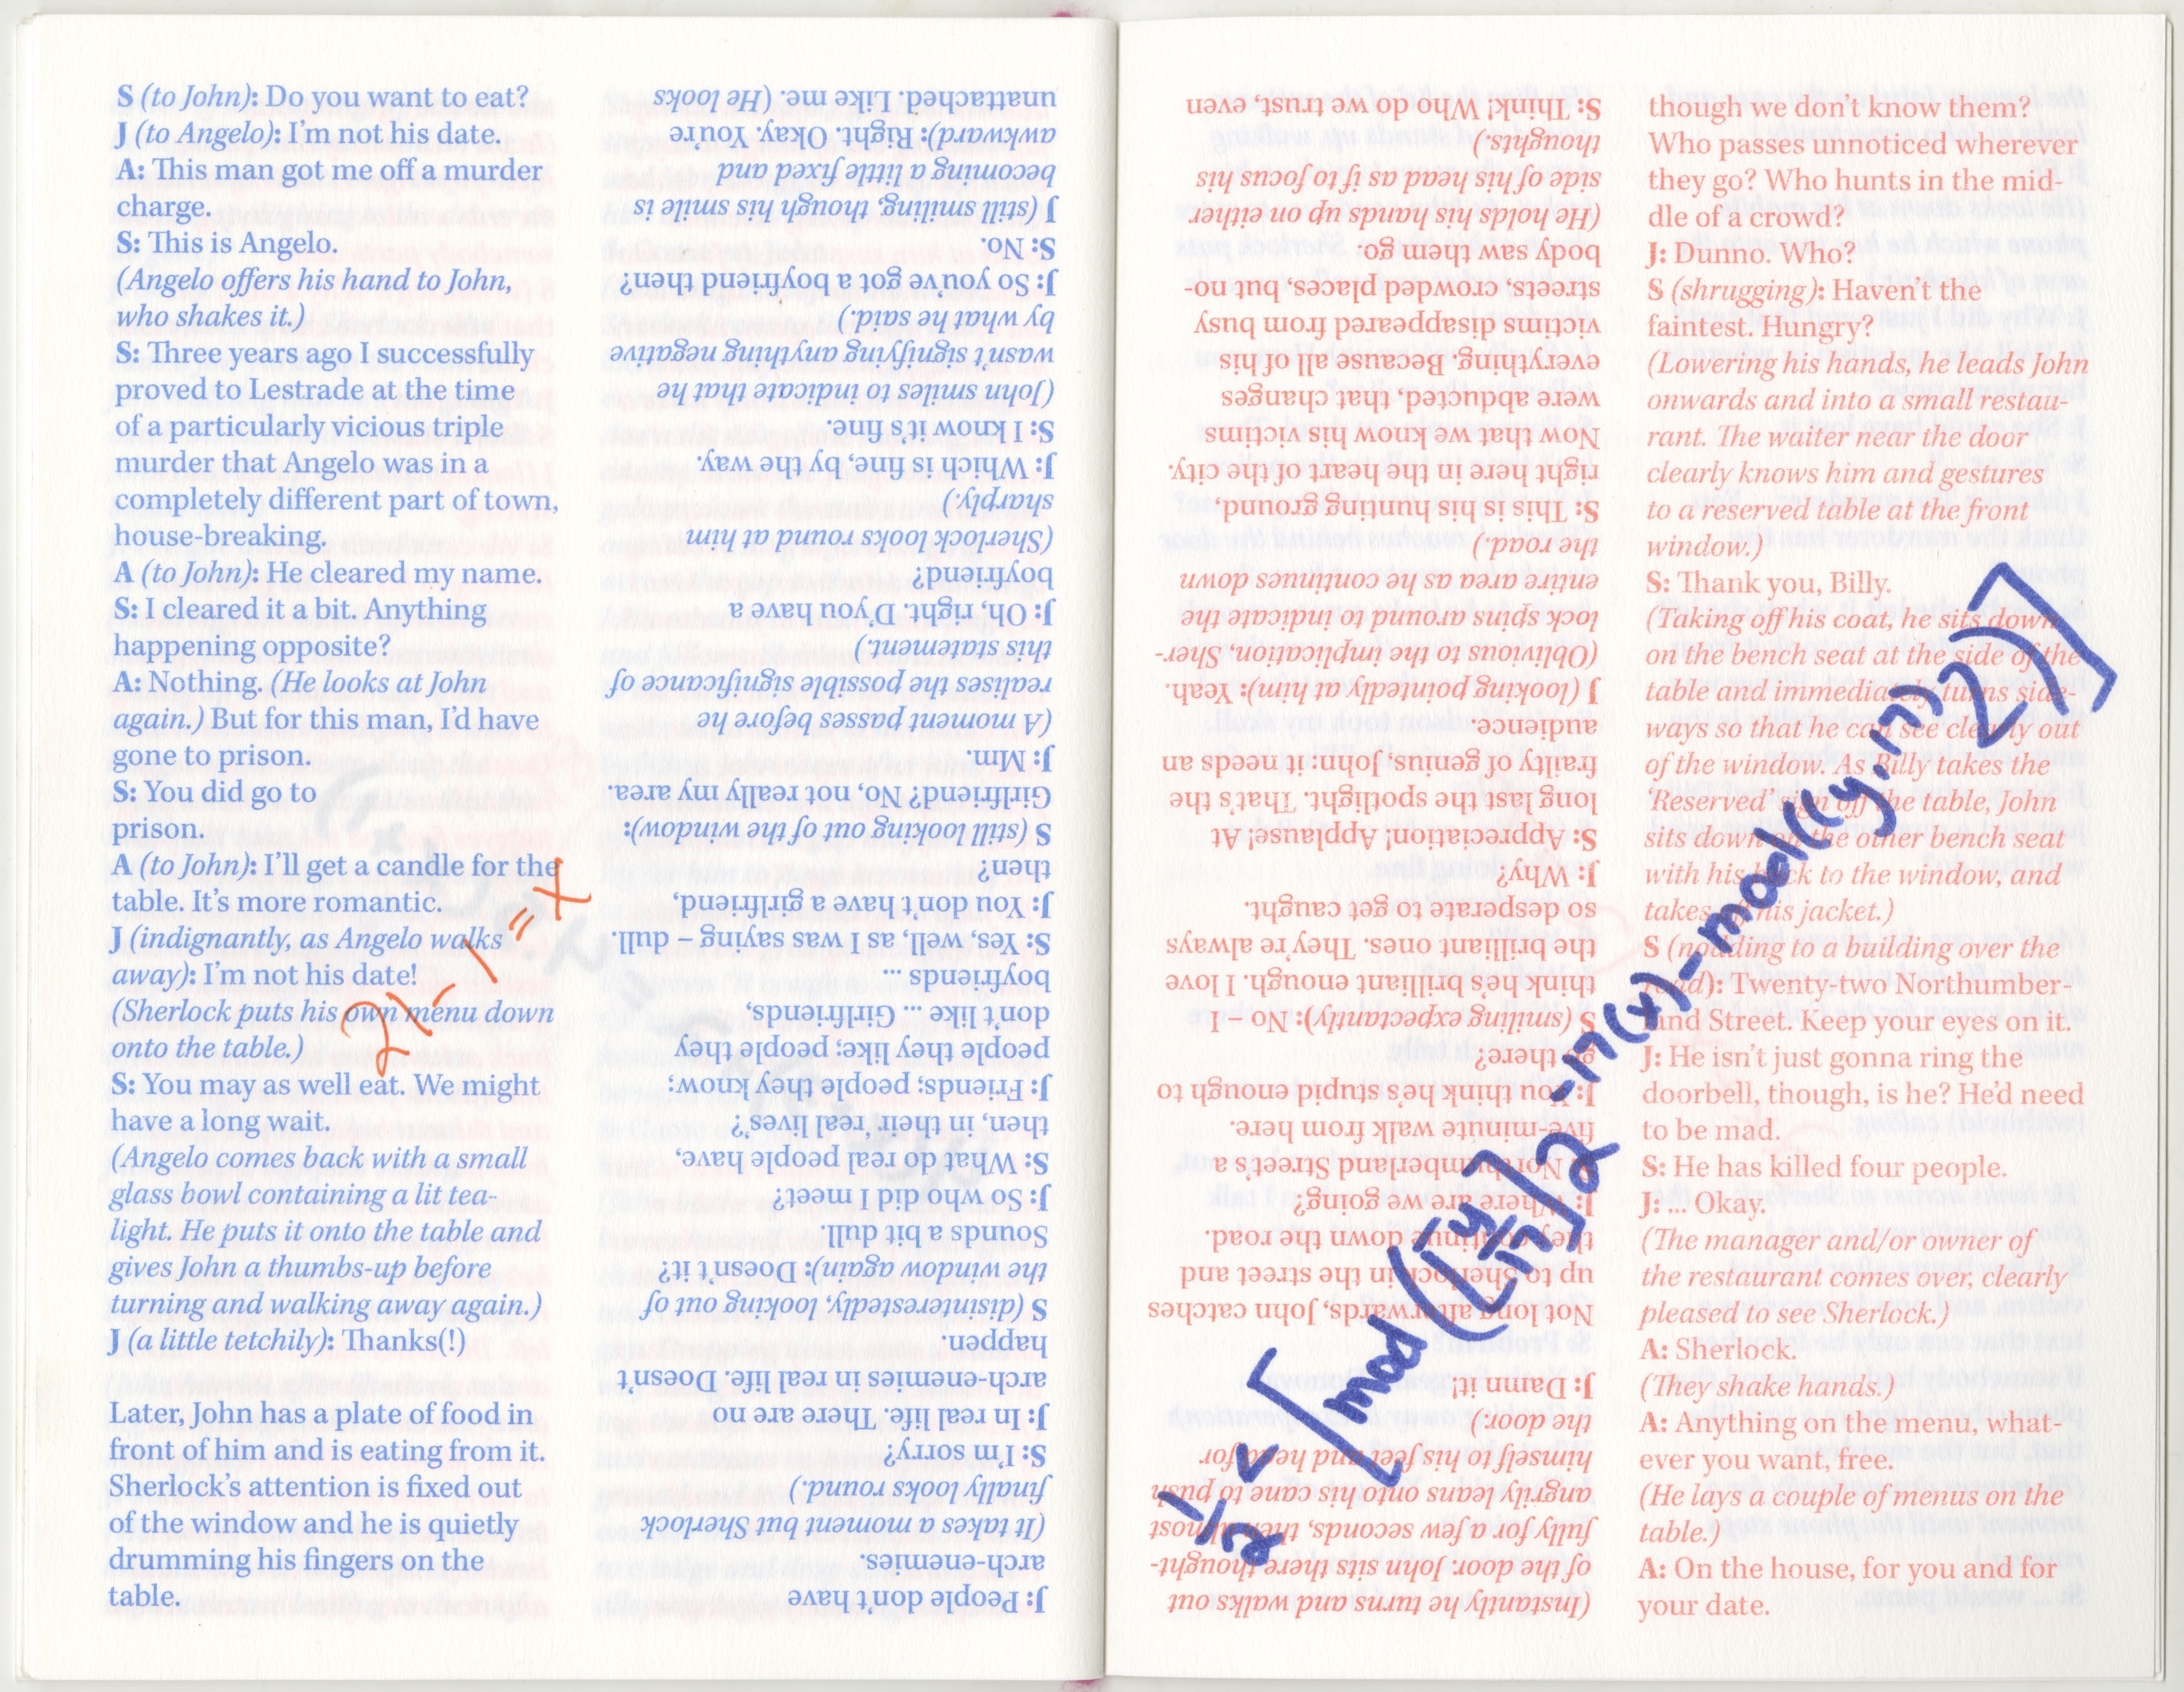 S (to John): Do you want to eat?
J (to Angelo): I'm not his date.
A: This man got me off a murder
charge.
S: This is Angelo.
(Angelo offers his hand to John,
who shakes it.)
S: Three years ago I successfully
proved to Lestrade at the time
of a particularly vicious triple
murder that Angelo was in a
completely different part of town,
house-breaking.
A (to John): He cleared my name.
S: I cleared it a bit. Anything
happening opposite?
A: Nothing. (He looks at John
again.) But for this man, I'd have
gone to prison.
S: You did go to
prison.
A (to John): I'll get a candle for the
table. It's more romantic.
J (indignantly, as Angelo walks
away): I'm not his date!
(Sherlock puts his own menu down
onto the table.)
S: You may as well eat. We might
have a long wait.
(Angelo comes back with a small
glass bowl containing a lit tea-
light. He puts it onto the table and
gives John a thumbs-up before
turning and walking away again.)
J (a little tetchily): Thanks(!)
Later, John has a plate of food in
front of him and is eating from it.
Sherlock's attention is fixed out
of the window and he is quietly
drumming his fingers on the
table.
J: People don't have
arch-enemies.
(It takes a moment but Sherlock
finally looks round.)
S: I'm sorry?
J: In real life. There are no
arch-enemies in real life. Doesn't
happen.
S (disinterestedly, looking out of
the window again): Doesn't it?
Sounds a bit dull.
J: So who did I meet?
S: What do real people have,
then, in their 'real lives'?
J: Friends; people they know;
people they like; people they
don't like ... Girlfriends,
boyfriends ...
S: Yes, well, as I was saying – dull.
J: You don't have a girlfriend,
then?
S (still looking out of the window):
Girlfriend? No, not really my area.
J: Mm.
(A moment passes before he
realises the possible significance of
this statement.)
J: Oh, right. D'you have a
boyfriend?
(Sherlock looks round at him
sharply.)
J: Which is fine, by the way.
S: I know it's fine.
(John smiles to indicate that he
wasn't signifying anything negative
by what he said.)
J: So you've got a boyfriend then?
S: No.
J (still smiling, though his smile is
becoming a little fixed and
awkward): Right. Okay. You're
unattached. Like me. (He looks
2x-1=x
(Instantly he turns and walks out
of the door. John sits there thought-
fully for a few seconds, then almost
angrily leans onto his cane to push
himself to his feet and heads for
the door.)
J: Damn it!
Not long afterwards, John catches
up to Sherlock in the street and
they continue down the road.
J: Where are we going?
S: Northumberland Street's a
five-minute walk from here.
J: You think he's stupid enough to
go there?
S (smiling expectantly): No – I
think he's brilliant enough. I love
the brilliant ones. They're always
so desperate to get caught.
J: Why?
S: Appreciation! Applause! At
long last the spotlight. That's the
frailty of genius, John: it needs an
audience.
J (looking pointedly at him): Yeah.
(Oblivious to the implication, Sher-
lock spins around to indicate the
entire area as he continues down
the road.)
S: This is his hunting ground,
right here in the heart of the city.
Now that we know his victims
were abducted, that changes
everything. Because all of his
victims disappeared from busy
streets, crowded places, but no-
body saw them go.
(He holds his hands up on either
side of his head as if to focus his
thoughts.)
S: Think! Who do we trust, even
though we don't know them?
Who passes unnoticed wherever
they go? Who hunts in the mid-
dle of a crowd?
J: Dunno. Who?
S (shrugging): Haven't the
faintest. Hungry?
(Lowering his hands, he leads John
onwards and into a small restau-
rant. The waiter near the door
clearly knows him and gestures
to a reserved table at the front
window.)
S: Thank you, Billy.
(Taking off his coat, he sits down
on the bench seat at the side of the
table and immediately turns side-
ways so that he can see clearly out
of the window. As Billy takes the
'Reserved' sign off the table, John
sits down on the other bench seat
with his back to the window, and
takes off his jacket.)
S (nodding to a building over the
road): Twenty-two Northumber-
land Street. Keep your eyes on it.
J: He isn't just gonna ring the
doorbell, though, is he? He'd need
to be mad.
S: He has killed four people.
J: ... Okay.
(The manager and/or owner of
the restaurant comes over, clearly
pleased to see Sherlock.)
A: Sherlock.
(They shake hands.)
A: Anything on the menu, what-
ever you want, free.
(He lays a couple of menus on the
table.)
A: On the house, for you and for
your date.
1/2 < [mod([y/17]2-17(x)-mod((y,17)2)]